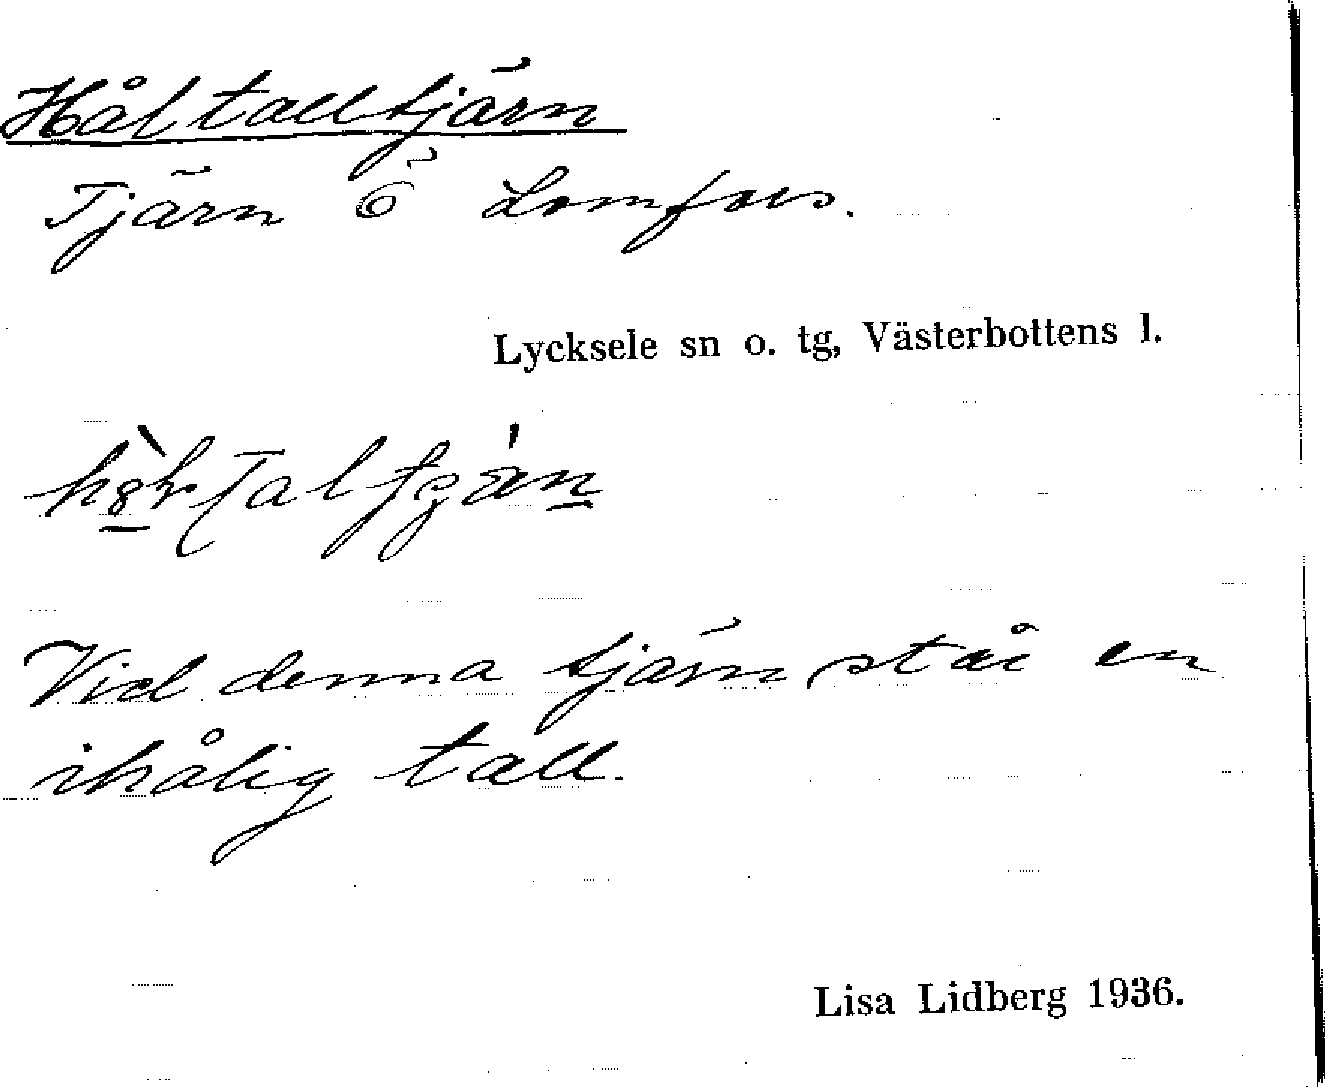 Håltalltjärn
Tjärn Ö Lomfors.
Lycksele sn o. tg, Västerbottens l.
Vid denna tjärn står en
ihålig tall.
Lisa Lidberg 1936.